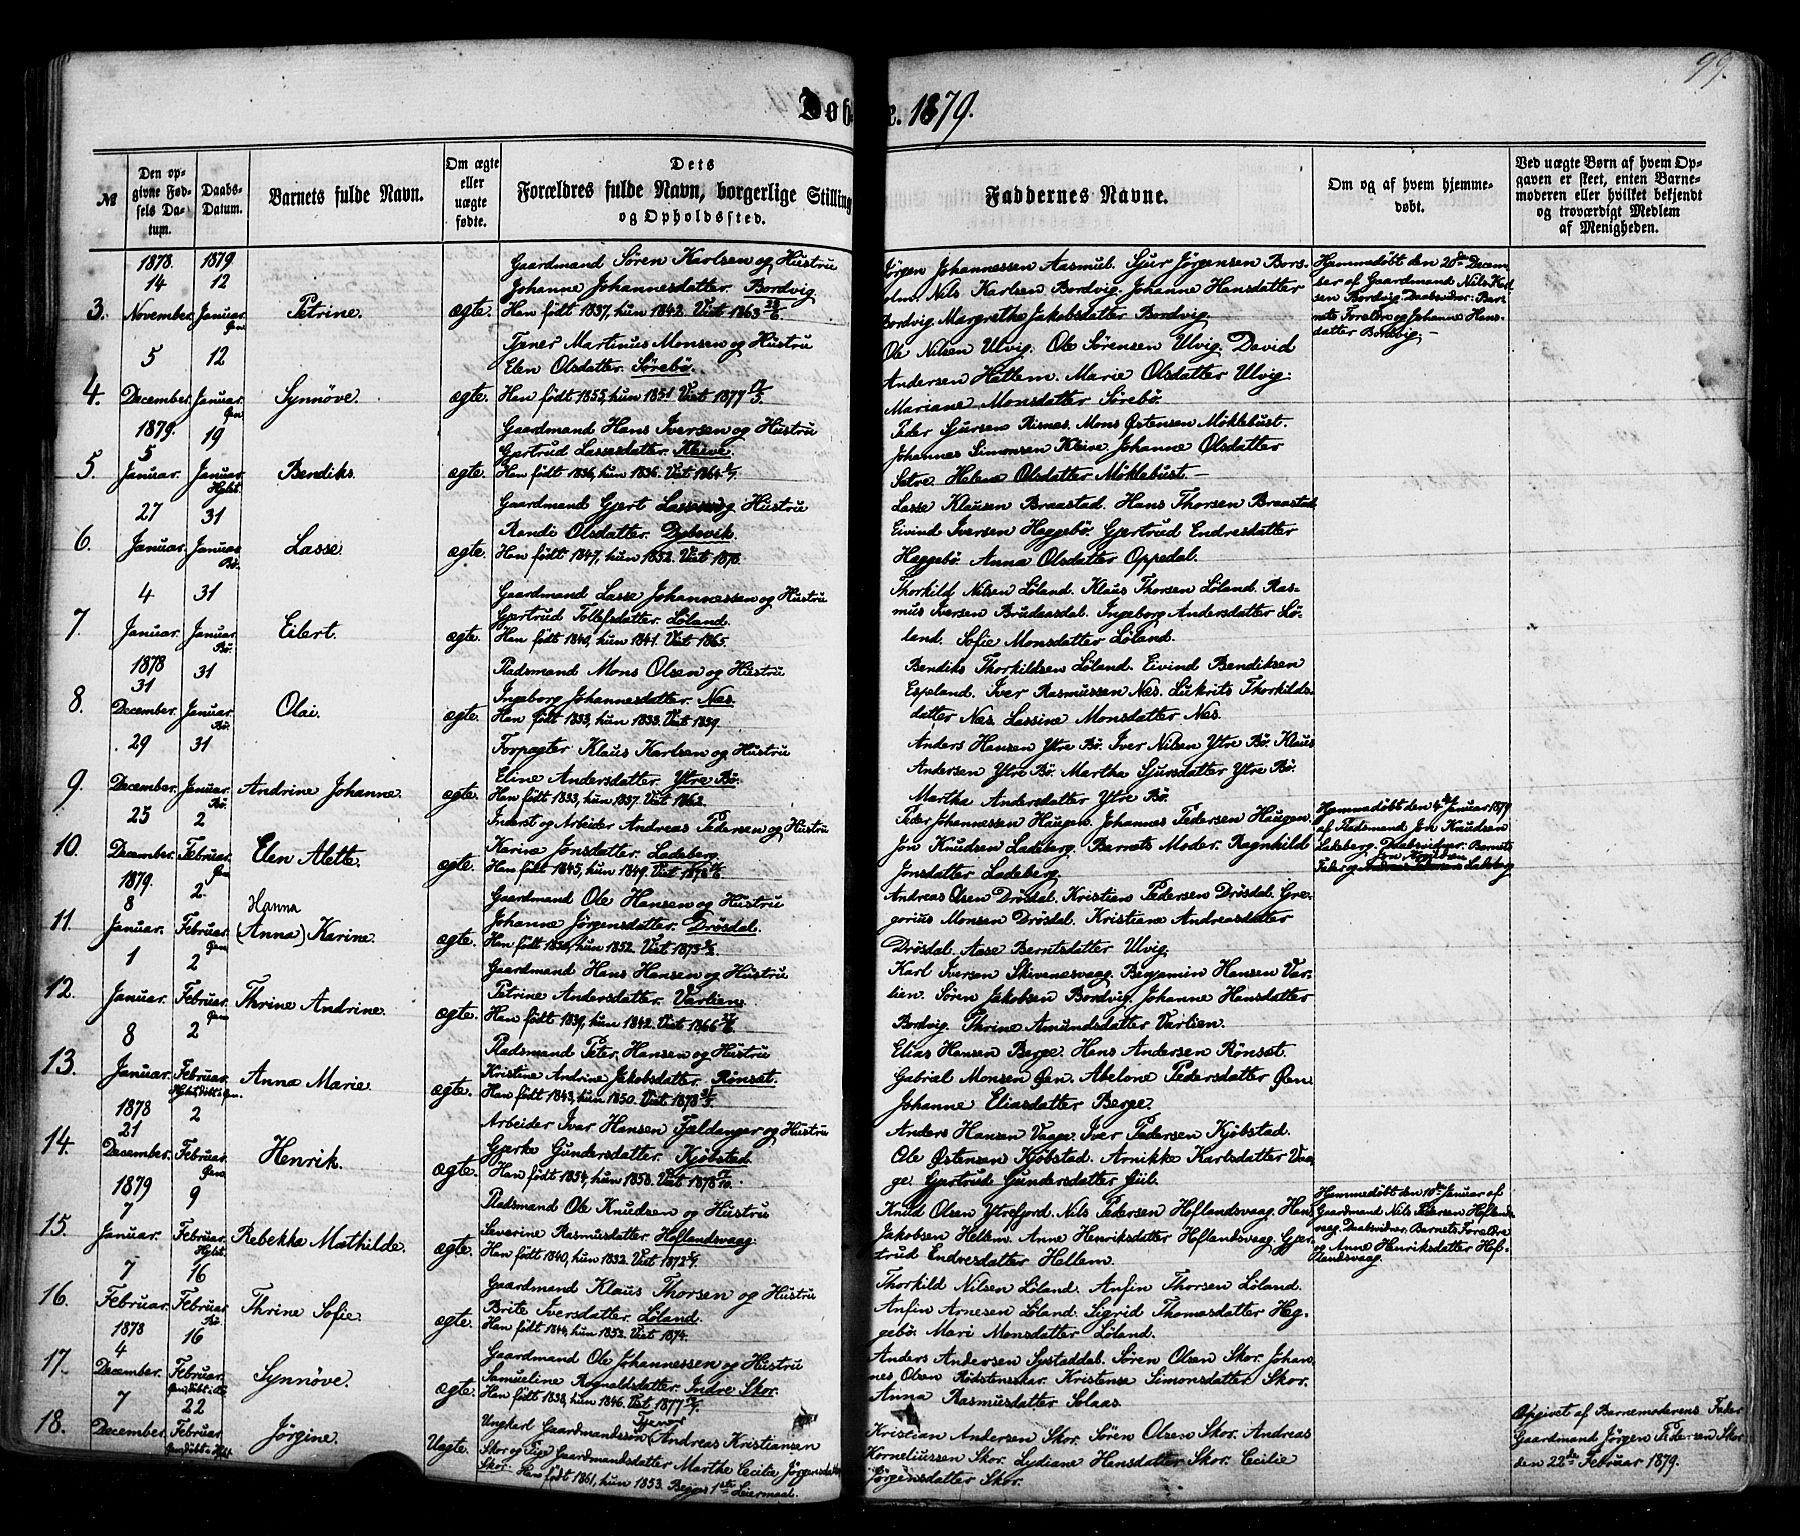 99.
Dobte. 1879.
№
Den opgivne Fødsels Datum.
Daabs-Datum.
Barnets fulde Navn.
Om ægte eller uægte fødte.
Dets
Forældres fulde Navn, borgerlige Stilling
og Opholdssted.
Faddernes Navne.
Om og af hvem hjemmedøbt.
Ved uægte Børn af hvem Opgaven er skeet, enten Barnemoderen eller hvilket bekjendt og troværdigt Medlem af Menigheden.
3.
1878.
14
November.
1879
12
Januar.
Petrine.
ægte.
Gaardmand Søren Karlsen og Hustru
Johanne Johannesdatter. Bordvig
Han født 1837, hun 1842. Viet 1863
Jørgen Johannessen Aasmul. Sjur Jørgensen Bors-
olm. Nils Karlsen Bordvig. Johanne Hansdatter
Bordvig. Margrethe Jakobsdatter Bordvig.
Hjemmedøbt den 20de Decem-
ber af Gaardmand Nils Karl-
sen Bordvig. Daabsvidner: Bar-
nets Foreldre og Johanne Hans-
datter Bordvig. —
4.
5
December.
12
Januar.
Synnöve.
ægte.
Tjener Martinus Monsen og Hustru
Elen Olsdatter. Sørebø.
Han født 1855, hun 1851. Viet 1877
Ole Nilsen Ulvig. Ole Sörensen Ulvig. David
Andersen Hetlem. Marie Olsdatter Ulvig.
Mariane Monsdatter Sørebø.
5.
1879.
5
Januar.
19
Januar.
Bendiks.
ægte.
Gaardmand Hans Iversen og Hustru
Gjertrud Lassesdatter. Kleive.
Han født 1836, hun 1836. Viet 1864
Peder Sjursen Risnes. Mons Östensen Möklebust.
Johannes Simonsen Kleive. Johanne Olsdatter
Sætre. Helena Olsdatter Möklebust.
6.
27
Januar.
31
Januar.
Bø.
Lasse.
ægte.
Gaardmand Gjert Lassen og Hustru
Randi Olsdatter. Dybevik.
Han født 1847, hun 1852. Viet 1870.
Lasse Klausen Braastad. Hans Thorsen Braastad
Eivind Iversen Heggebö. Gjertrud Endresdatter
Heggebö. Anna Olsdatter Oppedal.
7.
4
Januar.
31
Januar.
Bø.
Eilert.
ægte.
Gaardmand Lasse Johannessen og Hustru
Gjertrud Tollefsdatter. Löland.
Han født 1840, hun 1841. Viet 1865.
Thorkild Nilsen Löland. Klaus Thorsen Löland. Ras-
mus Iversen Brudensdal. Ingeborg Andersdatter Lö-
land. Sofie Monsdatter Löland.
8.
1878
31
December.
31
Januar.
Bø.
Olai.
ægte.
Pladsmand Mons Olsen og Hustru
Ingeborg Johannesdatter. Nes.
Han født 1833, hun 1833. Viet 1859.
Bendiks Thorkildsen Löland. Eivind Bendiksen
Espeland. Iver Rasmussen Nes. Lukrits Thorkilds-
datter Nes. Lassine Monsdatter Nes.
9.
29
December.
31
Januar.
Bø.
Andrine Johanne.
ægte.
Forpagter Klaus Karlsen og Hustru
Eline Andersdatter. Ytre Bø.
Han født 1833, hun 1837. Viet 1862.
Anders Hansen Ytre Bö. Iver Nilsen Ytre Bö. Klaus
Andersen Ytre Bö. Martha Sjursdatter Ytre Bö.
Martha Andersdatter Ytre Bö.
10.
25
December.
2
Februar.
Elen Alette.
ægte.
Inderst og Arbeider Andreas Pedersen og Hustru
Karine Jonsdatter. Ladeberg.
Han født 1845, hun 1849. Viet 1872
Peder Johannessen Haugen. Johannes Pedersen Haugen.
Jon Knudsen Ladeberg. Barnets Moder. Ragnhild
Jonsdatter Ladeberg.
Hjemmedøbt den 4de Januar 1879
af Pladsmand Jon Knudsen
Ladeberg. Daabsvidner: Barnets
Fader og Jon Knudsen Ladeberg
11.
1879.
8
Januar.
2
Februar.
Hanna
(Anna) Karine.
ægte.
Gaardmand Ole Hansen og Hustru
Johanne Jörgensdatter. Drösdal.
Han født 1850, hun 1852. Viet 1873
Andreas Olsen Drösdal. Kristian Pedersen Drösdal. Gre-
gorius Monsen Drösdal. Kristiane Andreasdatter
Drösdal. Aase Berntsdatter Ulvig.
12.
1
Januar.
2
Februar.
Thrine Andrine.
ægte.
Gaardmand Hans Hansen og Hustru
Petrine Andersdatter. Varlien.
Han født 1839, hun 1842. Viet 1866
Karl Iversen Skivenesvaag. Benjamin Hansen Var-
lien. Sören Jakobsen Bordvig. Johanne Hansdatter
Bordvig. Thrine Amundsdatter Varlien.
13.
8
Januar.
2
Februar.
Anna Marie.
ægte.
Pladsmand Peter Hansen og Hustru
Kristine Andrine Jakobsdatter. Rönset.
Han født 1843, hun 1850. Viet 1878
Elias Hansen Berge. Hans Andersen Rönset.
Gabrial Monsen Öen. Abelone Pedersdatter Öen.
Johanne Eliasdatter Berge.
14.
1878
21
December.
2
Februar.
Henrik.
ægte.
Arbeider Ivar Hansen Fjeldanger og Hustru
Gjerke Gundersdatter. Kjöbstad.
Han født 1854, hun 1850. Viet 1878
Anders Hansen Vaage. Iver Pedersen Kjöbstad.
Ole Östensen Kjöbstad. Arnikke Karlsdatter Vaa-
ge. Gjertrude Gundersdatter Giil.
15.
1879
7
Januar.
9
Februar.
Rebekka Mathilde.
ægte.
Pladsmand Ole Knudsen og Hustru
Severine Rasmusdatter. Höflandsvaag.
Han født 1840, hun 1832. Viet 1872
Knud Olsen Ytrefjord. Nils Pedersen Höflandsvaag. Hans
Jakobsen Hellem. Anne Henriksdatter Höflandsvaag. Gjer-
trud Endresdatter Hellem.
Hjemmedøbt den 10de Januar af
Gaardmand Nils Petersen Höflands-
vaag. Daabsvidner: Barnets Foreldre
og Anne Henriksdatter Höf-
landsvaag.
16.
7
Februar.
16
Februar.
Bø.
Thrine Sofie.
ægte.
Gaardmand Klaus Thorsen og Hustru
Brite Iversdatter. Löland.
Han født 1844, hun 1852. Viet 1874.
Thorkild Nilsen Löland. Anfin Thorsen Löland.
Anfin Arnesen Löland. Sigrid Thomasdatter Heg-
gebö. Mari Monsdatter Löland.
17.
1878
4
December.
16
Februar.
Synnöve.
ægte.
Gaardmand Ole Johannessen og Hustru
Samueline Rognaldsdatter. Indre Skor.
Han født 1838, hun 1846. Viet 1877
Anders Andersen Systaddal. Sören Olsen Skor. Johan-
nes Olsen Röbstensskar. Kristense Simonsdatter Skor.
Anna Rasmusdatter Solaas.
18.
7
December.
22
Februar.
Jörgine.
Uægte.
Ungkarl Gaardmandssön Tjener Andreas Kristiansen
Skor og Pige Gaardmandsdatter Marthe Cecilie Jörgensdatter
Skor. Han født 1861, hun 1853. Begges 1ste Leiermaal.
Kristian Andersen Skor. Sören Olsen Skor. Andreas
Korneliussen Skor. Lydiane Hansdatter Skor. Cecilie
Jörgensdatter Skor.
Opgivet af Barnemoderens Fader
Gaardmand Jörgen Pedersen Skor
den 22de Februar 1879.